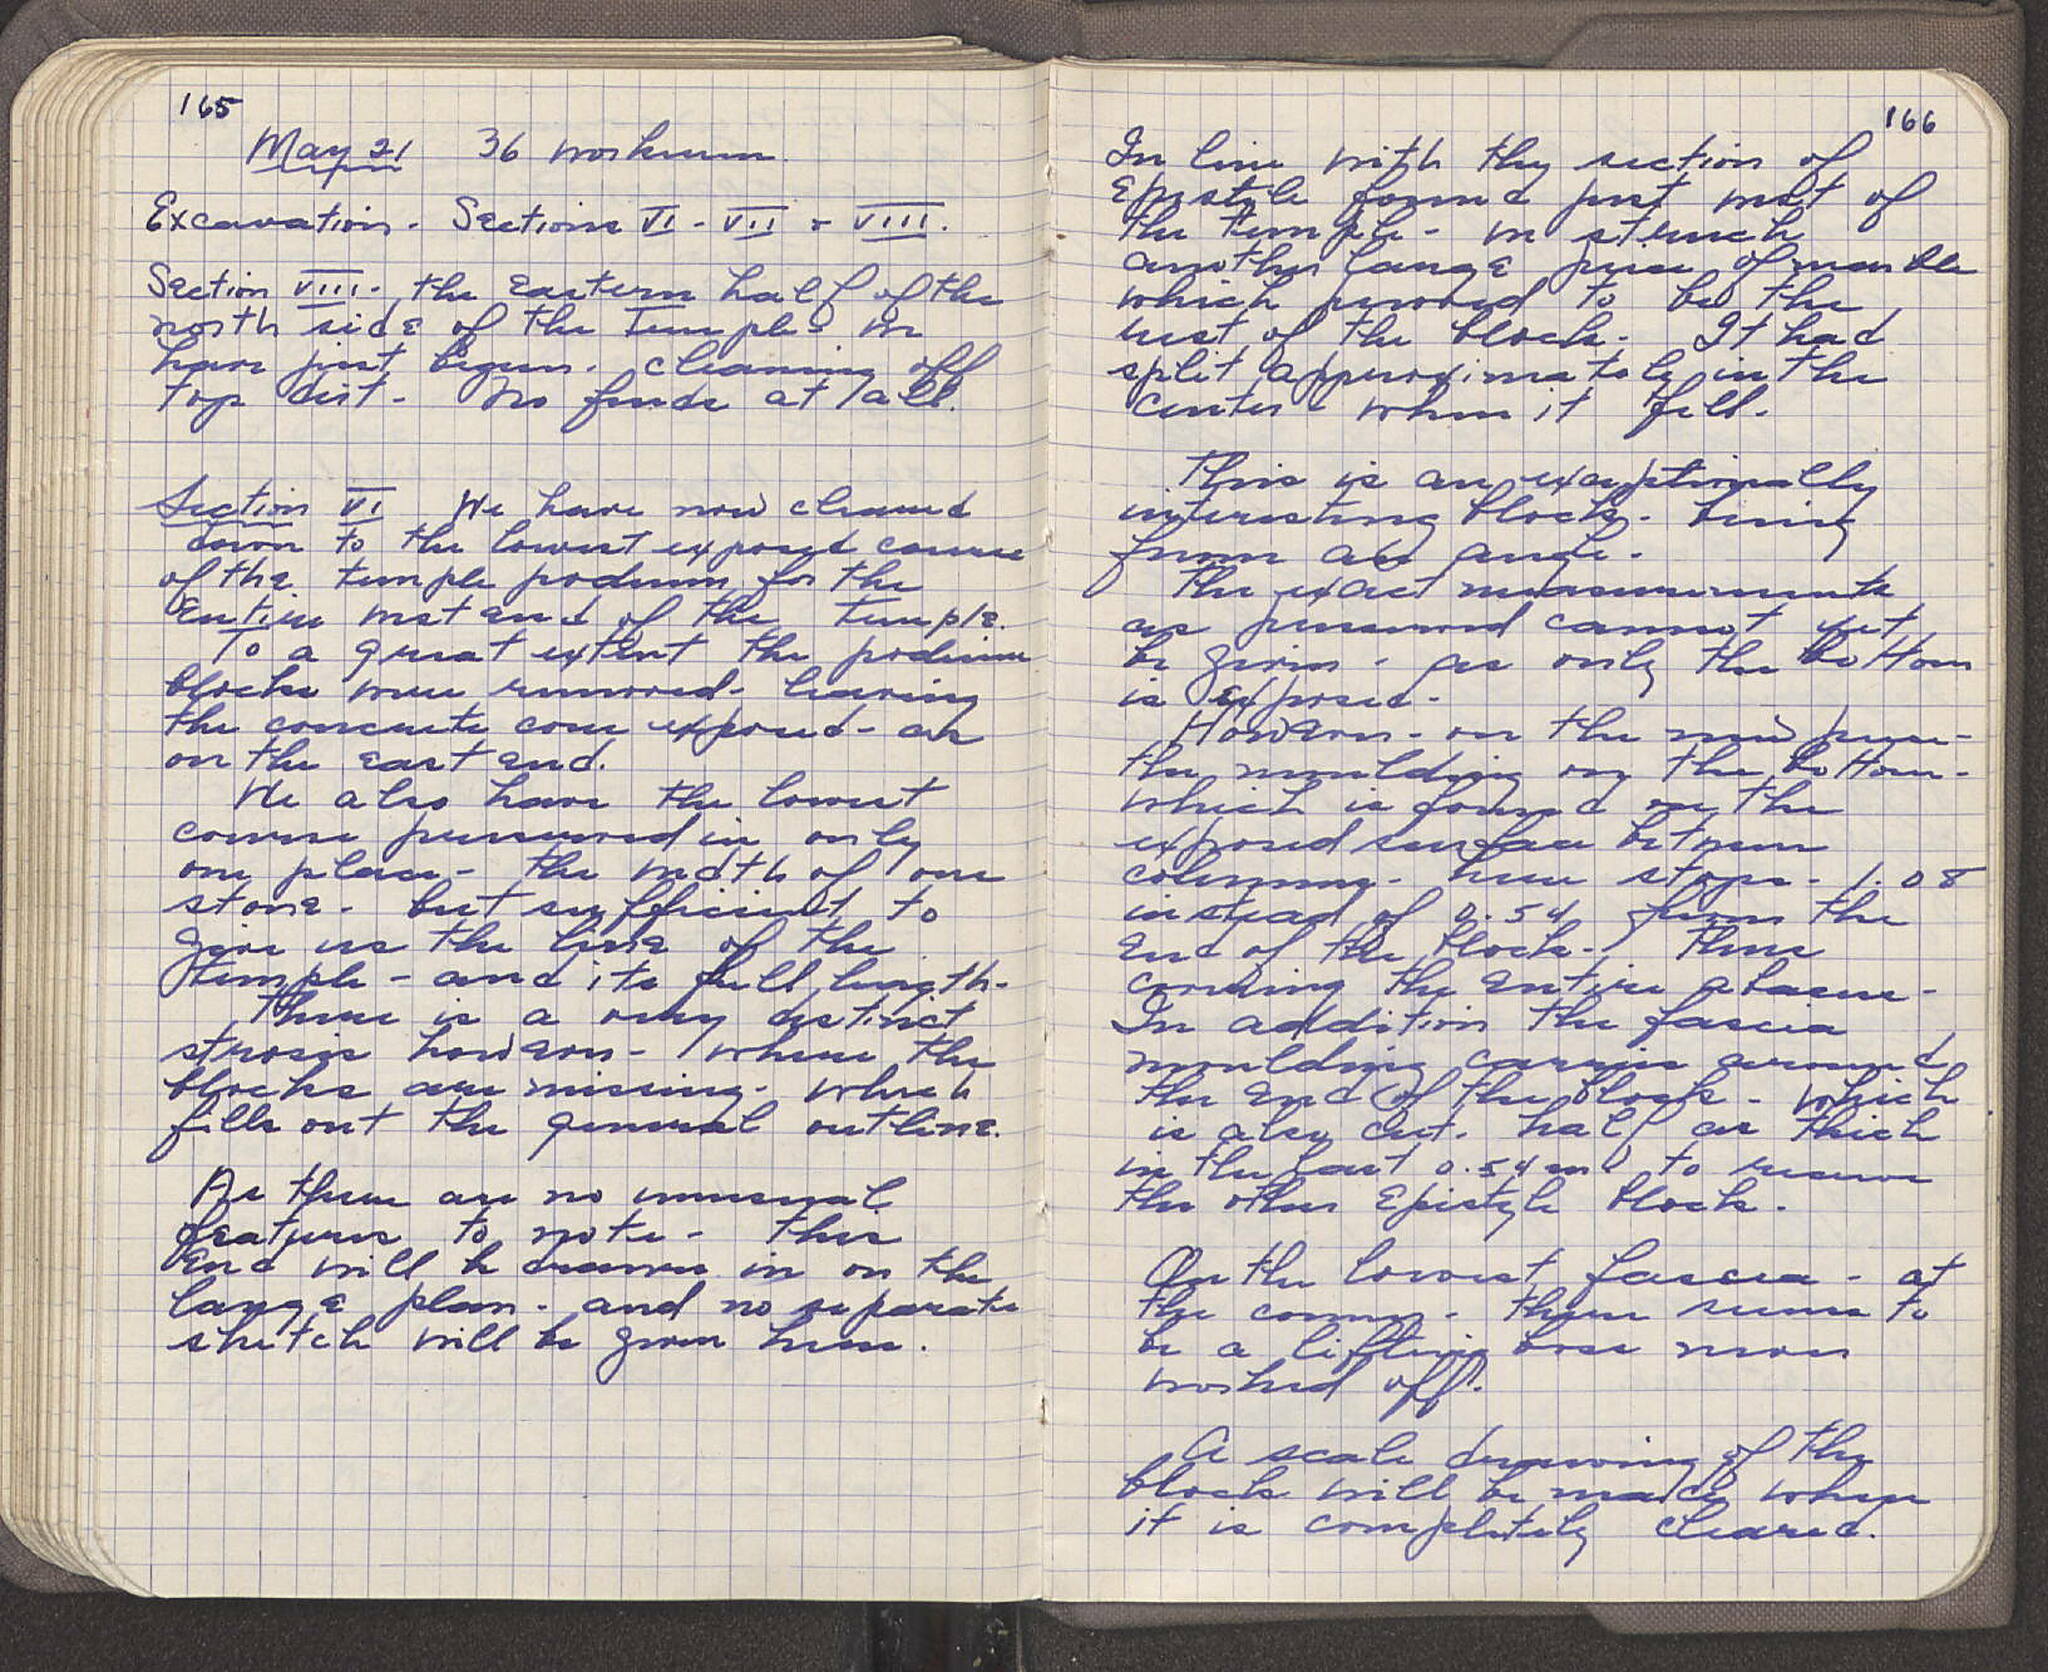 165
May 21 36 workmen
Excavation - Sections VI - VII + VIII.
Section VIII - the Eastern half of the
north side of the Temple - we
have just begun - cleaning off
top dirt - No finds at all.
Section VI We have now cleared
down to the lowest exposed course
of the temple podium for the
Entire west end of the Temple.
To a great extent the podium
blocks were removed - leaving
the concrete core exposed - as
on the east end.
We also have the lowest
course preserved in only
one place - the width of one
stone - but sufficient to
give us the line of the
temple - and its full length -
There is a very distinct
strosis however - where the
blocks are missing - which
fills out the general outline.
As there are no unusual
features to note - this
End will be drawn in on the
large plan - and no separate
sketch will be given here.
166
In line with the section of
Epistyle found just west of
the temple - we struck
another large piece of marble
which proved to be the
rest of the block - It had
split approximately in the
center when it fell -
This is an exceptionally
interesting block - being
from an angle -
The exact measurements
as preserved cannot yet
be given - as only the bottom
is exposed -
However - on the new piece -
the moulding on the bottom -
which is found on the
exposed surface between
columns - here stops - 1.08
instead of 0.54 from the
End of the block - thus
covering the Entire abacus -
In addition the fascia
moulding carries around
the End of the block - which
is also cut - half as thick
in the last 0.54 m to receive
the other Epistyle block -
On the lowest fascia - at
the corner - there seems to
be a lifting boss never
worked off.
A scale drawing of the
block will be made when
it is completely cleared.